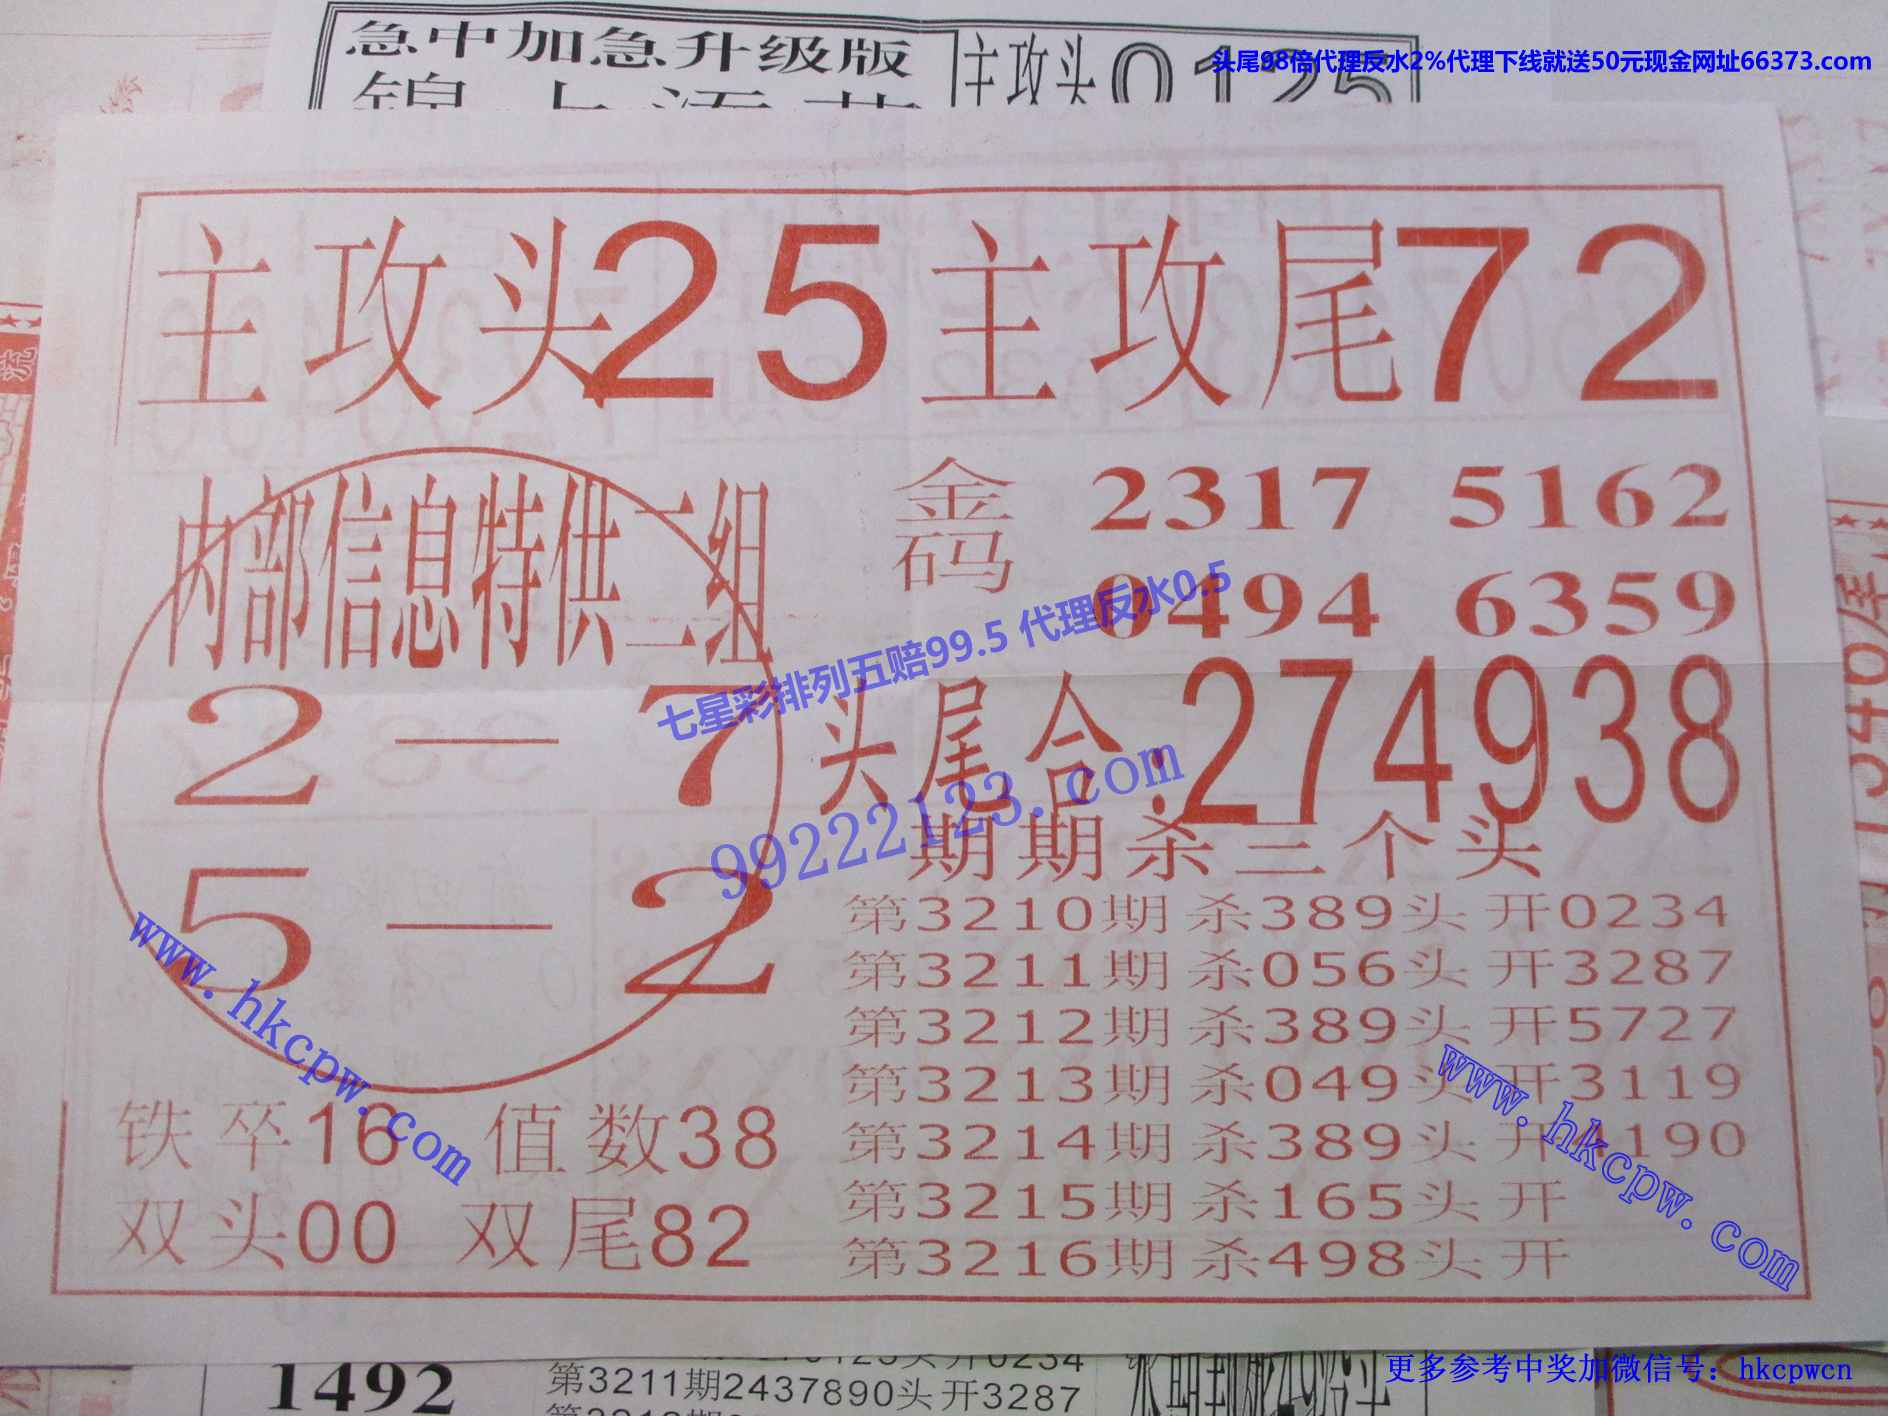 急中加急升级版
主攻头0125
头尾98倍代理反水2%代理下线就送50元现金网址66373.com
主攻头25 主攻尾72
内部信息特供二组
2—7
5—2
金码
2317 5162
0494 6359
七星彩排列五赔99.5 代理反水0.5
头尾合:274938
99222123.com
期期杀三个头
第3210期杀389头 开0234
第3211期杀056头 开3287
第3212期杀389头 开5727
第3213期杀049头 开3119
第3214期杀389头 开4190
第3215期杀165头 开
第3216期杀498头 开
www.hkcpw.com
www.hkcpw.com
铁卒16 值数38
双头00 双尾82
1492
第3211期2437890头开3287
更多参考中奖加微信号：hkcpwcn